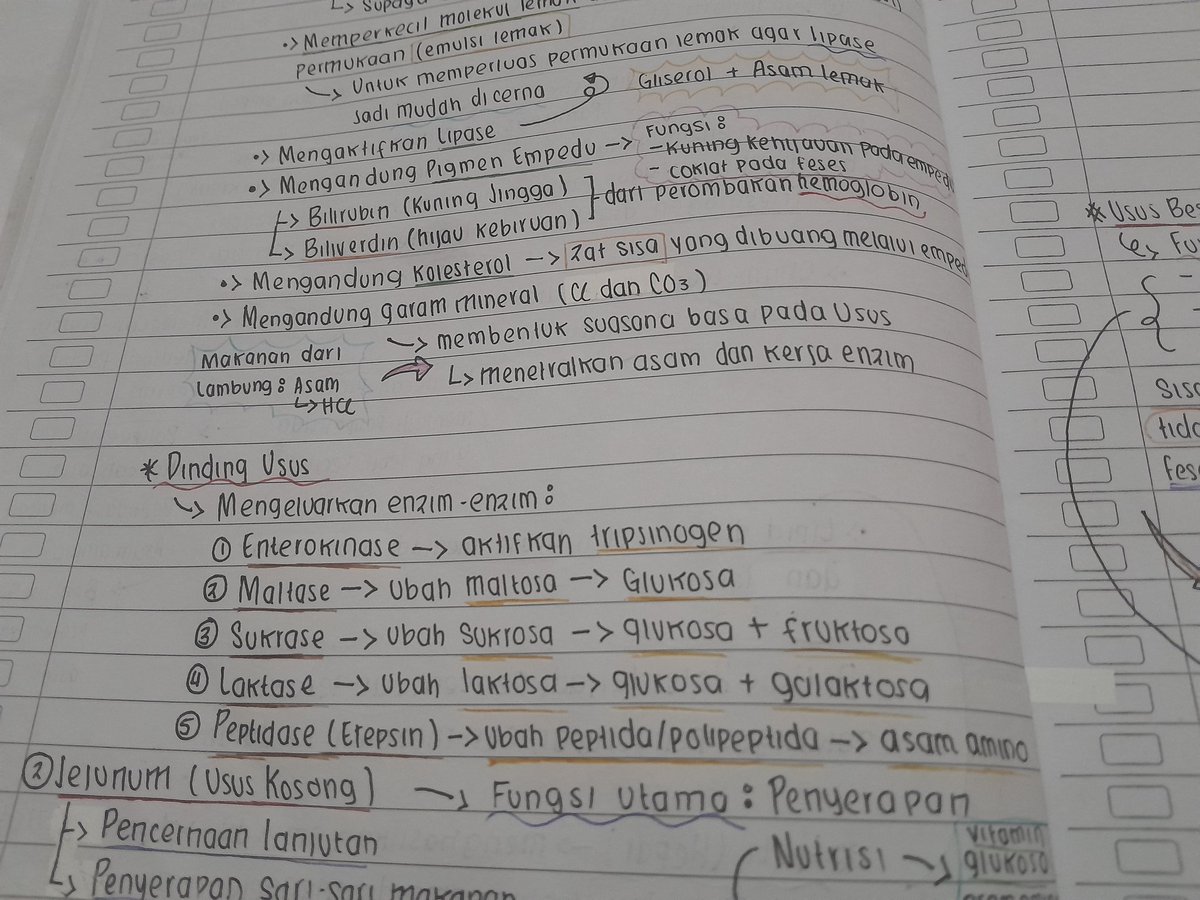 ↳ Supaya
•> Memperkecil molekul lemak
permukaan (emulsi lemak)
↳ Untuk memperluas permukaan lemak agar lipase
jadi mudah dicerna
Gliserol + Asam lemak
•> Mengaktifkan Lipase
•> Mengandung Pigmen Empedu →
Fungsi :
- Kuning kehijauan pada empedu
- coklat pada feses
↳ Bilirubin (Kuning Jingga)
↳ Biliverdin (hijau kebiruan)
dari perombakan hemoglobin
•> Mengandung Kolesterol → Zat sisa yang dibuang melalui empedu
•> Mengandung garam mineral (Cl dan CO3)
↳ membentuk suasana basa pada Usus
↳ menetralkan asam dan kerja enzim
Makanan dari
Lambung : Asam
↳ HCl
* Dinding Usus
↳ Mengeluarkan enzim-enzim :
① Enterokinase → aktifkan tripsinogen
② Maltase → Ubah maltosa → Glukosa
③ Sukrase → Ubah sukrosa → glukosa + fruktosa
④ Laktase → Ubah laktosa → glukosa + galaktosa
⑤ Peptidase (Erepsin) → Ubah peptida/polipeptida → asam amino
② Jejunum (Usus Kosong) → Fungsi utama : Penyerapan
↳ Pencernaan lanjutan
↳ Penyerapan sari-sari makanan
Nutrisi →
vitamin
glukosa
* Usus Bes
↳ Fu
sisa
tida
fes